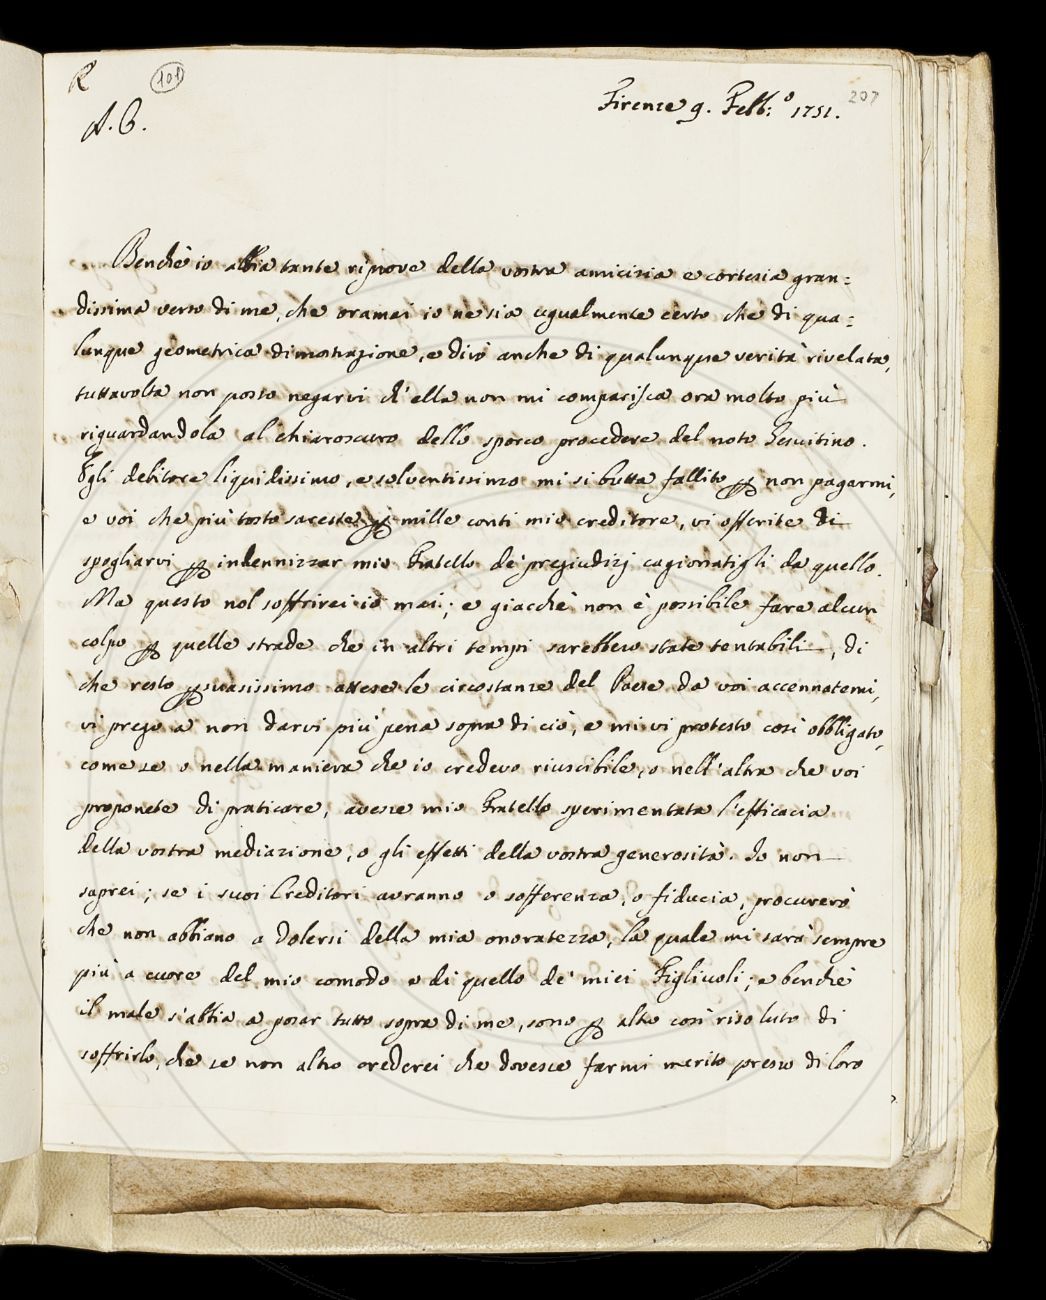 R 101
A. C.
Firenze 9. Febb:º 1751. 207
Benchè io abbia tante riprove della vostra amicizia e cortesia gran=
dissima verso di me, che oramai io ne sia egualmente certo che di qua=
lunque geometrica dimostrazione, e dirò anche di qualunque verità rivelata,
tuttavolta non posso negarvi ch'ella non mi comparisca ora molto più
riguardandola al chiaroscuro dello sporco procedere del noto Gesuitino.
Egli debitore liquidissimo, e solventissimo mi si butta fallito per non pagarmi,
e voi che più tosto sareste per mille conti mio creditore, vi offerite di
spogliarvi per indennizzar mio Fratello de' pregiudizj cagionatigli da quello.
Ma questo nol soffrirei io mai; e giacchè non è possibile fare alcun
colpo per quelle strade che in altri tempi sarebbero state tentabili, di
che resto persuasissimo attese le circostanze del Paese da voi accennatemi,
vi prego a non darvi più pena sopra di ciò, e mi vi protesto così obbligato,
come se o nella maniera che io credevo riuscibile, o nell'altra che voi
proponete di praticare, avesse mio Fratello sperimentata l'efficacia
della vostra mediazione, o gli effetti della vostra generosità. Io non
saprei; se i suoi Creditori avranno o sofferenza, o fiducia, procurerò
che non abbiano a dolersi della mia onoratezza, la quale mi sarà sempre
più a cuore del mio comodo e di quello de' miei Figliuoli; e benchè
il male s'abbia a posar tutto sopra di me, sono per altro così risoluto di
soffrirlo, che se non altro crederei che dovesse farmi merito presso di loro